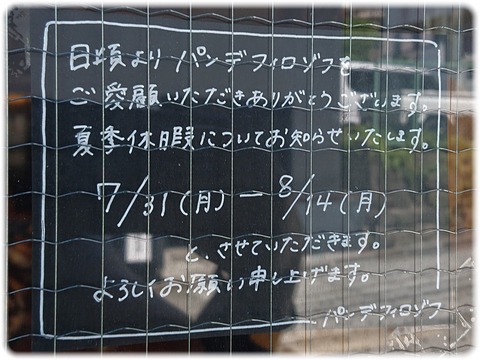 日頃より パンデフィロゾフを
ご愛願いただきありがとうございます。
夏季休暇についてお知らせいたします。
7/31(月) ー 8/14(月)
と、させていただきます。
よろしくお願い申し上げます。
パンデフィロゾフ